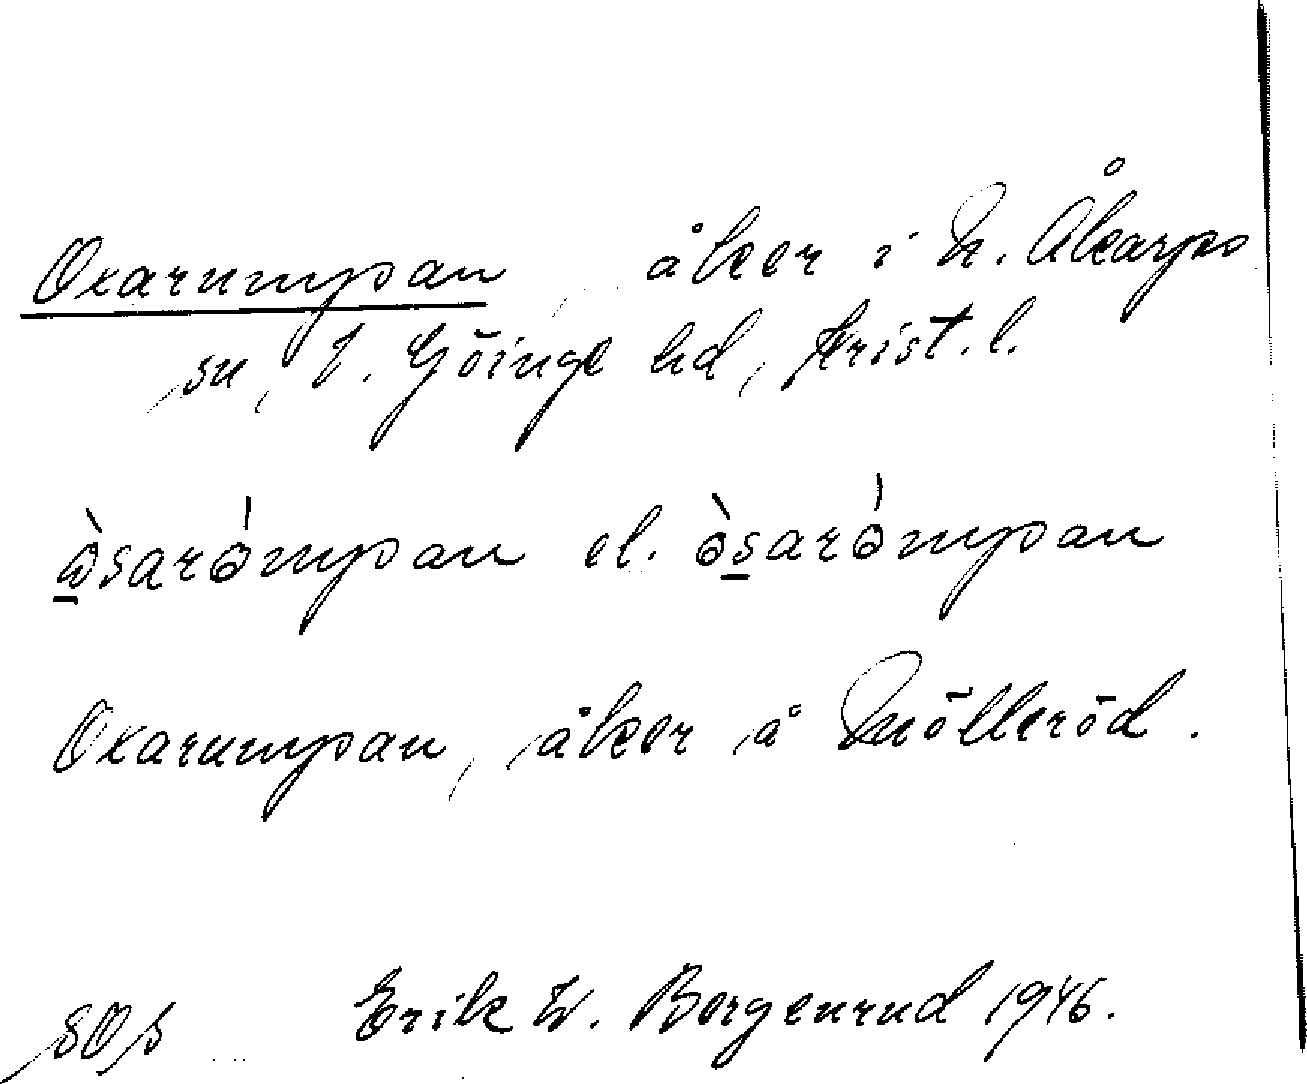 Oxarumpan, åker i N. Åkarps
sn, V. Göinge hd, Krist. l.
òsarómpan el. òsarómpan
Oxarumpan, åker å Mölleröd.
SOS Erik W. Bergenrud 1946.